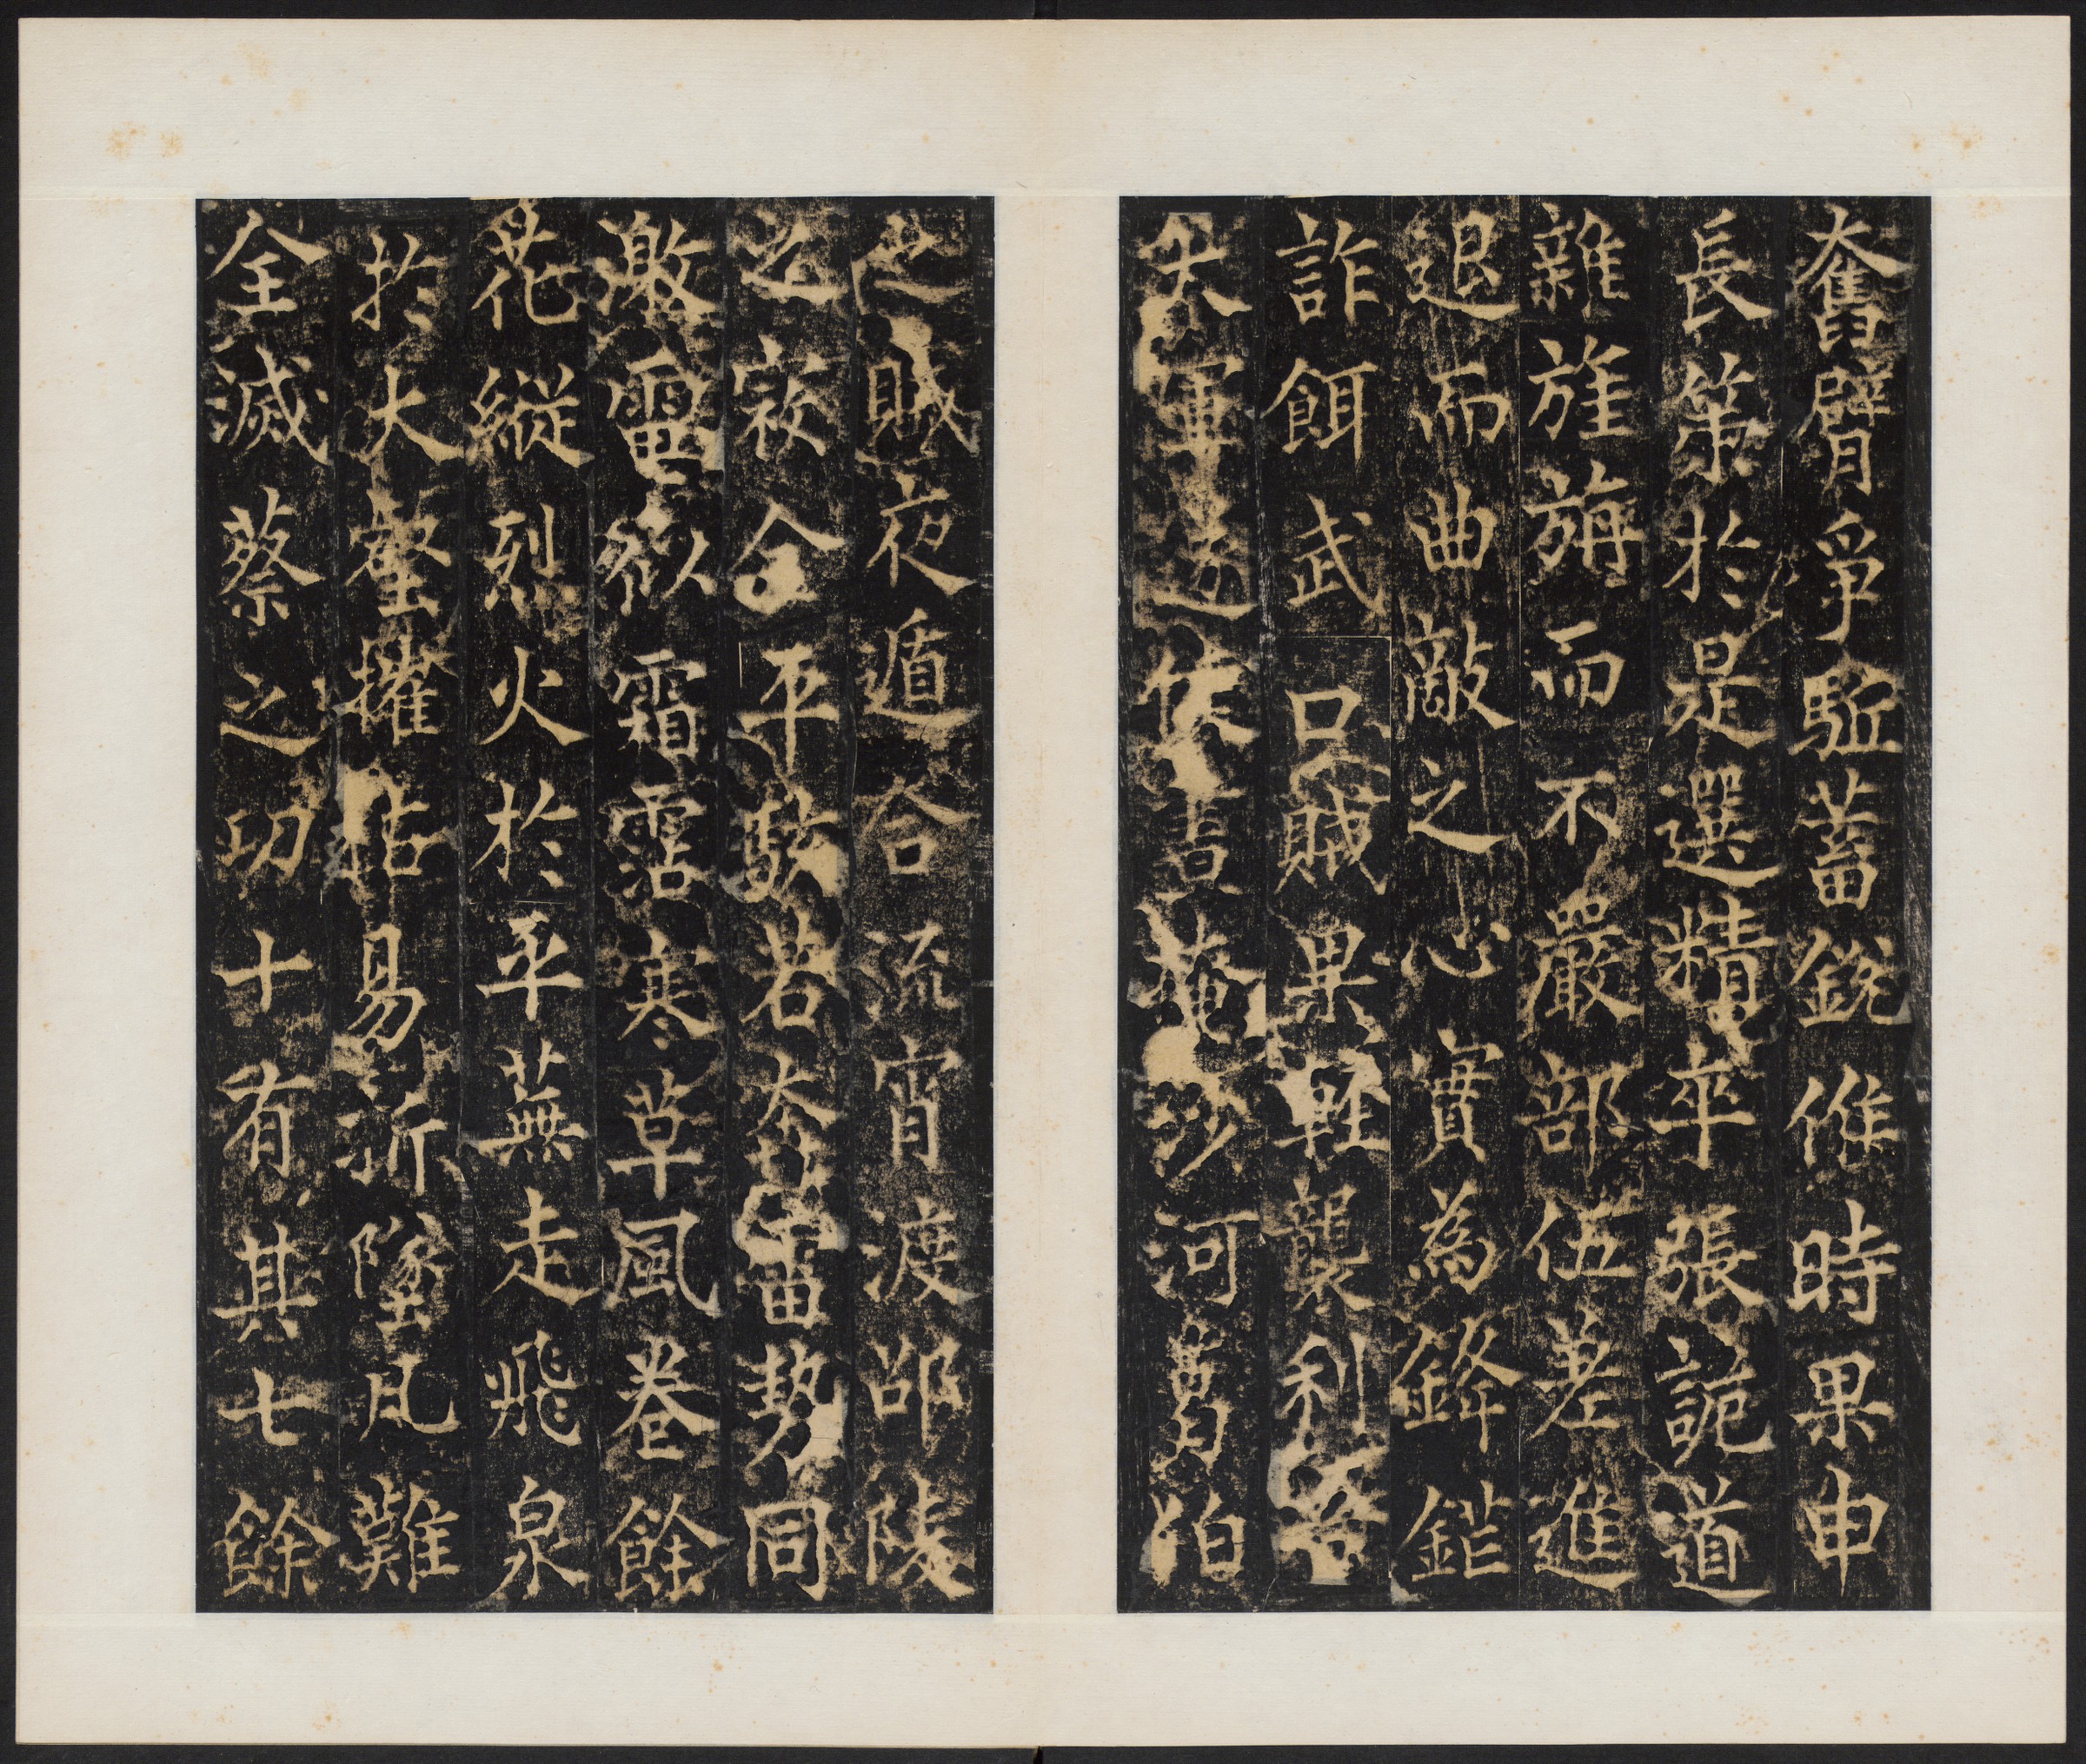 奮臂爭駈蓄銳俟時果申
長策於是選精卒張詭道
雜旌旃而不嚴部伍差進
退而曲敵之心實為鋒鎧
詐餌武口賊果輕襲利
大軍逐北掩沙河鄡
賊夜遁合流宵渡邵陵
之寂合平欺若奔雷勢同
激電似霜霑寒草風卷餘
花縱烈火於平蕪走飛泉
於大壑摧枯易折墜凡難
全滅蔡之功十有其七餘